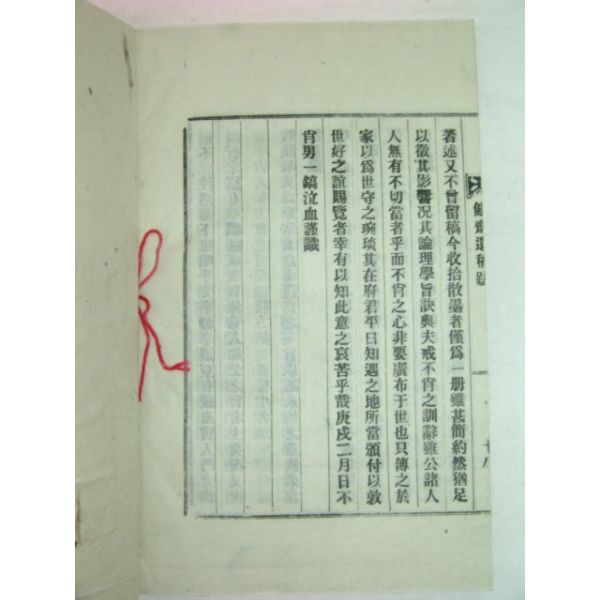 著述又不曾留稿今收拾散墨者僅爲一册雖甚簡約然猶足
以徵其影響况其論理學旨訣與夫戒不肖之訓辭雖公諸人
人無有不切當者乎而不肖之心非要廣布于世也只傳之於
家以爲世守之琬琰其在府君平日知遇之地所當頒付以敦
世好之誼賜覽者幸有以知此意之哀苦乎哉庚戌二月日不
肖男一鎬泣血謹識
齋遺稿跋
十八